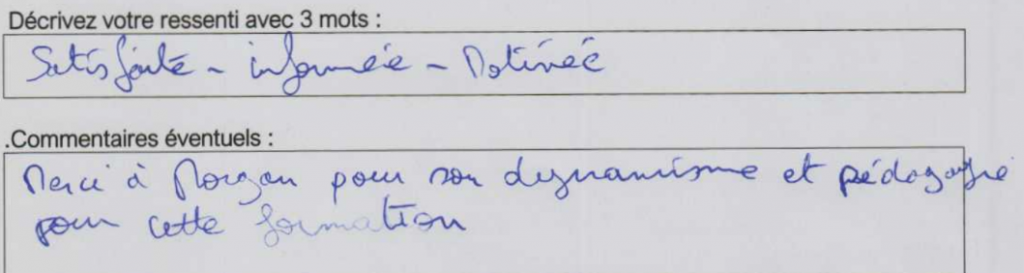 Décrivez votre ressenti avec 3 mots :
Satisfaite - informée - Motivée
.Commentaires éventuels :
Merci à Morgan pour son dynamisme et pédagogie
pour cette formation